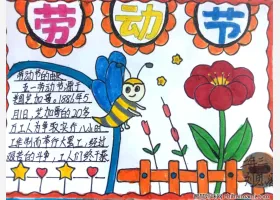 劳动节
劳动节的由来
五一劳动节源于
美国芝加哥。1886年5
月1日，芝加哥的20多
万工人为争取实行八小时
工作制而举行大罢工，经过
艰苦的斗争，工人们终于获